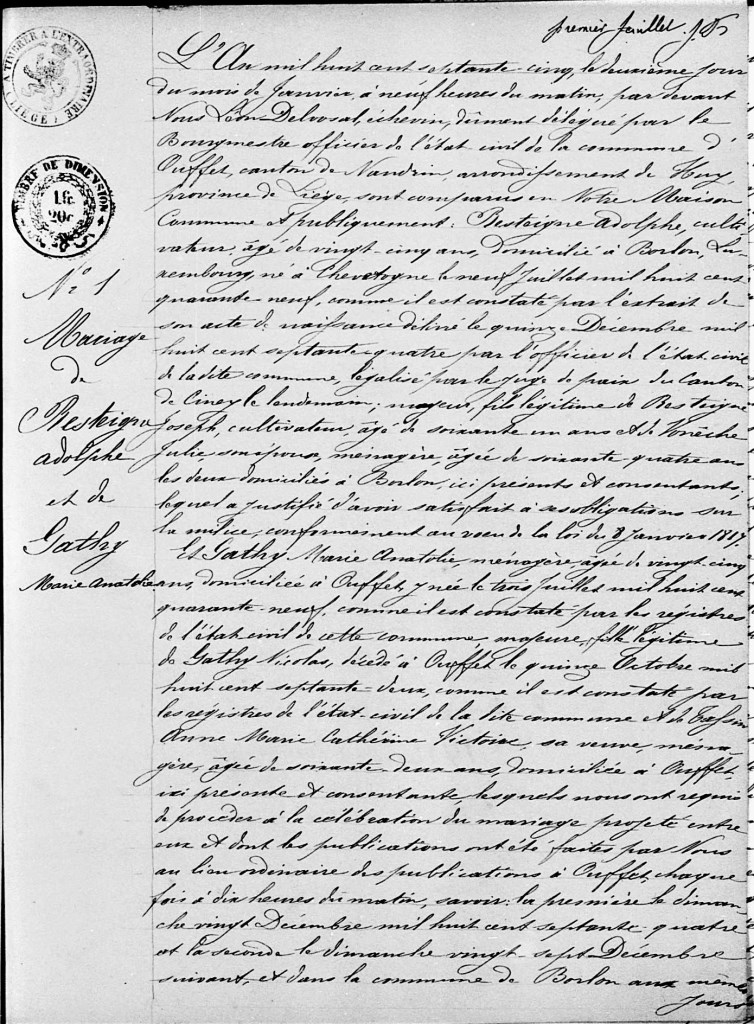 premier feuillet. J.D
A TIMBRER A L'EXTRAORDINAIRE
LIÈGE
TIMBRE DE DIMENSION
1 fr.
20c
N° 1
Mariage
de
Resteigne
adolphe
et de
Gathy
Marie anatolie
L'An mil huit cent septante-cinq, le deuxième jour
du mois de Janvier, à neuf heures du matin, par devant
Nous Léon Delvosal, échevin, dûment délégué par le
Bourgmestre officier de l'état civil de la commune d'
Ouffet, canton de Nandrin, arrondissement de Huy,
province de Liége, sont comparus en Notre Maison
Commune et publiquement: Resteigne adolphe, culti-
vateur, âgé de vingt-cinq ans, domicilié à Borlon, Lu
xembourg, né à Chevetogne le neuf Juillet mil huit cent
quarante neuf, comme il est constaté par l'extrait de
son acte de naissance délivré le quinze Décembre mil
huit cent septante-quatre par l'officier de l'état civil
de la dite commune, légalisé par le juge de paix du Canton
de Ciney le lendemain; majeur, fils légitime de Resteigne
Joseph, cultivateur, âgé de soixante un ans et de Vonêche
Julie son épouse, ménagère, âgée de soixante quatre ans
les deux domiciliés à Borlon, ici présents et consentants,
lequel a justifié d'avoir satisfait à ses obligations sur
la milice, conformément au voeu de la loi du 8 Janvier 1817.
Et Gathy Marie Anatolie, ménagère, âgée de vingt cinq
ans, domiciliée à Ouffet, y née le trois Juillet mil huit cent
quarante-neuf, comme il est constaté par les régistres
de l'état civil de cette commune, majeure, fille légitime
de Gathy Nicolas, décédé à Ouffet le quinze Octobre mil
huit cent septante-deux, comme il est constaté par
les régistres de l'état-civil de la dite commune et de Tassin
Anne Marie Cathérine Victoire, sa veuve, ména-
gère, âgée de soixante-deux ans, domiciliée à Ouffet
ici présente et consentante, lesquels nous ont requis
de procéder à la célébration du mariage projeté entre
eux et dont les publications ont été faites par Nous
au lieu ordinaire des publications à Ouffet, chaque
fois à dix heures du matin, savoir: la première le diman-
che vingt Décembre mil huit cent septante-quatre
et la seconde le dimanche vingt-sept Décembre
suivant, et dans la commune de Borlon aux mêmes
jours